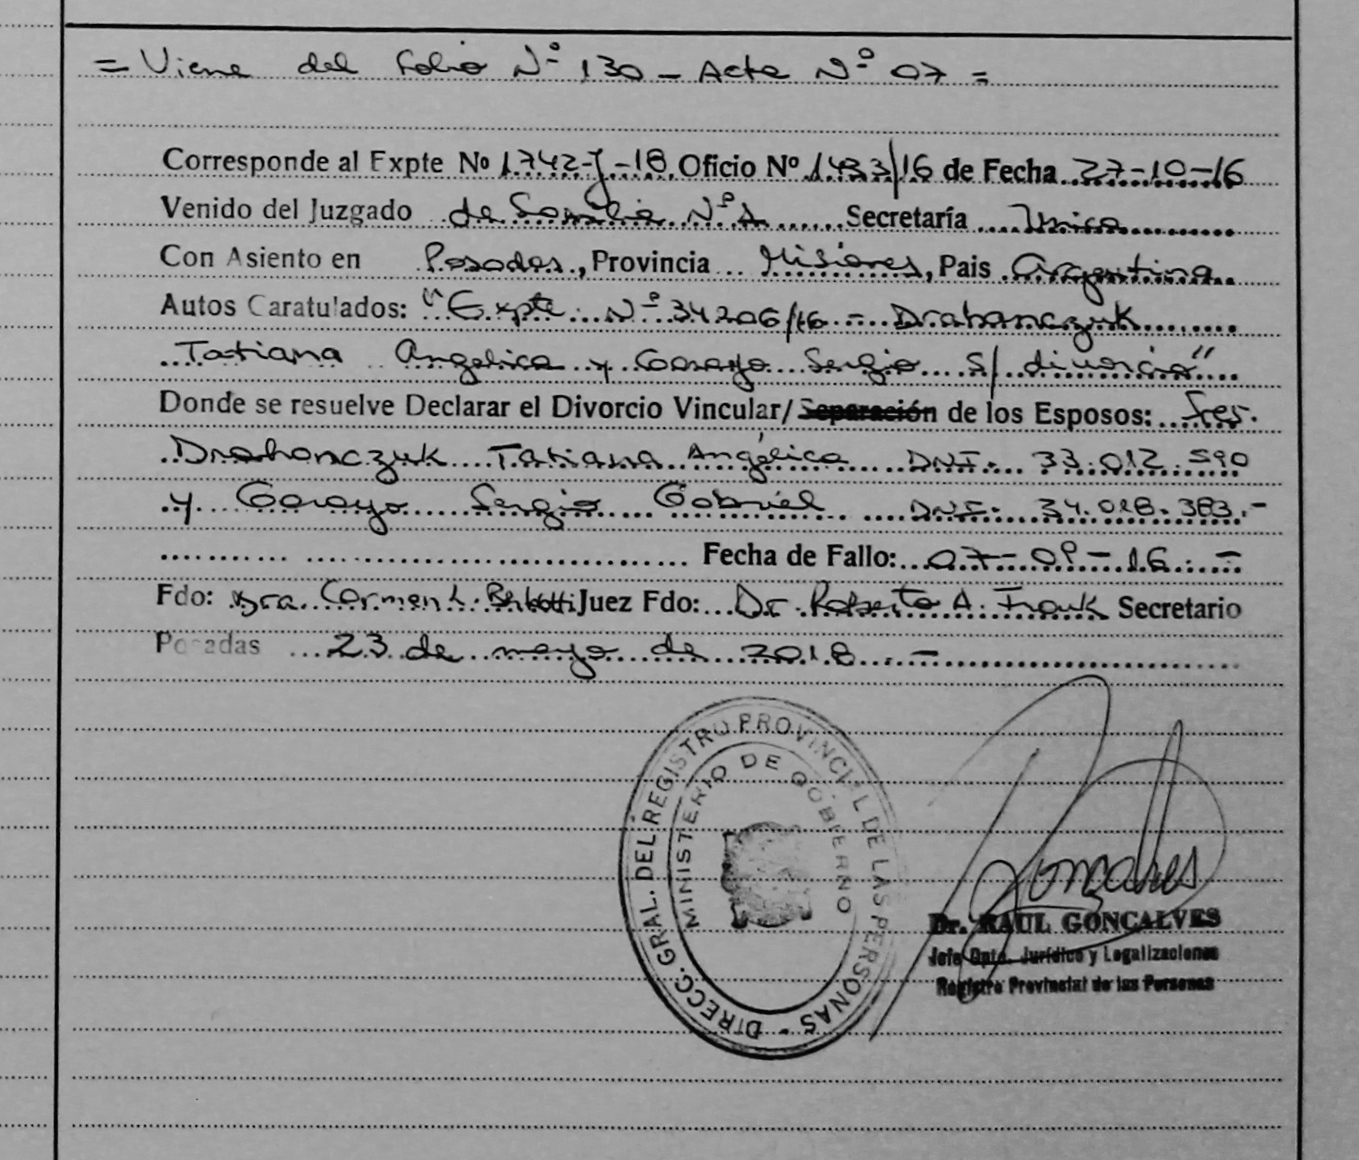 = Viene del Folio Nº 130 - Acta Nº 07 =
Corresponde al Expte Nº 1742-J-18 Oficio Nº 1.433/16 de Fecha 27-10-16
Venido del Juzgado de Familia Nº 1 Secretaría Unica
Con Asiento en Posadas, Provincia Misiones, Pais Argentina
Autos Caratulados: "Expte Nº 34206/16 - Drahanczuk
Tatiana Angelica y Garayo Sergio S/ divorcio"
Donde se resuelve Declarar el Divorcio Vincular/Separación de los Esposos: Sres.
Drahanczuk Tatiana Angélica DNI. 33.012.590
y Garayo Sergio Gabriel DNI. 34.028.383.-
Fecha de Fallo: 07-09-16.-
Fdo: Dra. Carmen L. Juez Fdo: Dr. Roberto A. Frank Secretario
Posadas 23 de mayo de 2018.-
DIRECC. GRAL. DEL REGISTRO PROVINCIAL DE LAS PERSONAS -
MINISTERIO DE GOBIERNO
Goncalves
Dr. RAUL GONCALVES
Jefe Dpto. Jurídico y Legalizaciones
Registro Provincial de las Personas